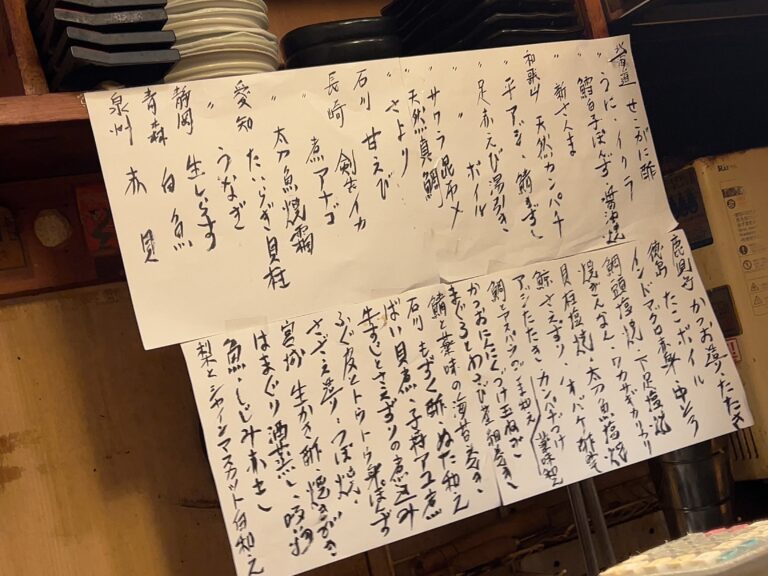 北海道 せこがに酢
〃 うに、イクラ
〃 鱈白子ぽんず 醤油焼
〃 新さんま
和歌山 天然カンパチ
〃 平アジ、鯖きずし
〃 足赤えび湯引き
〃 ボイル
〃 サワラ昆布〆
〃 天然真鯛
〃 さより
石川 甘えび
〃 剣先イカ
長崎 煮アナゴ
〃 太刀魚焼霜
〃 たいらぎ貝柱
愛知 うなぎ
〃 生しらす
静岡 白魚
青森
泉州 赤貝
鹿児島 かつお造り、たたき
徳島 たこボイル
インドマグロ赤身・中とろ
鯛頭塩焼・下足塩焼
焼ぎんなん・ワカサギカリカリ
貝柱塩焼・太刀魚塩焼
鯨さえずり・オバケ酢みそ
アジたたき
鯛とアスパラのごま和え
かつおにんにくづけ玉ねぎ
まぐろとわさび菜
鯖と薬味の海苔巻き
石川 もずく酢・ぬた和え
ばい貝煮・子持アユ煮
生すじとさえずりの煮込み
ふぐ皮とトウトウ身ぽんず
さざえ造り・つぼ焼
宮城 生かき酢・焼きがき
はまぐり酒蒸し・吸物
魚・しじみ赤だし
梨とシャインマスカット白和え